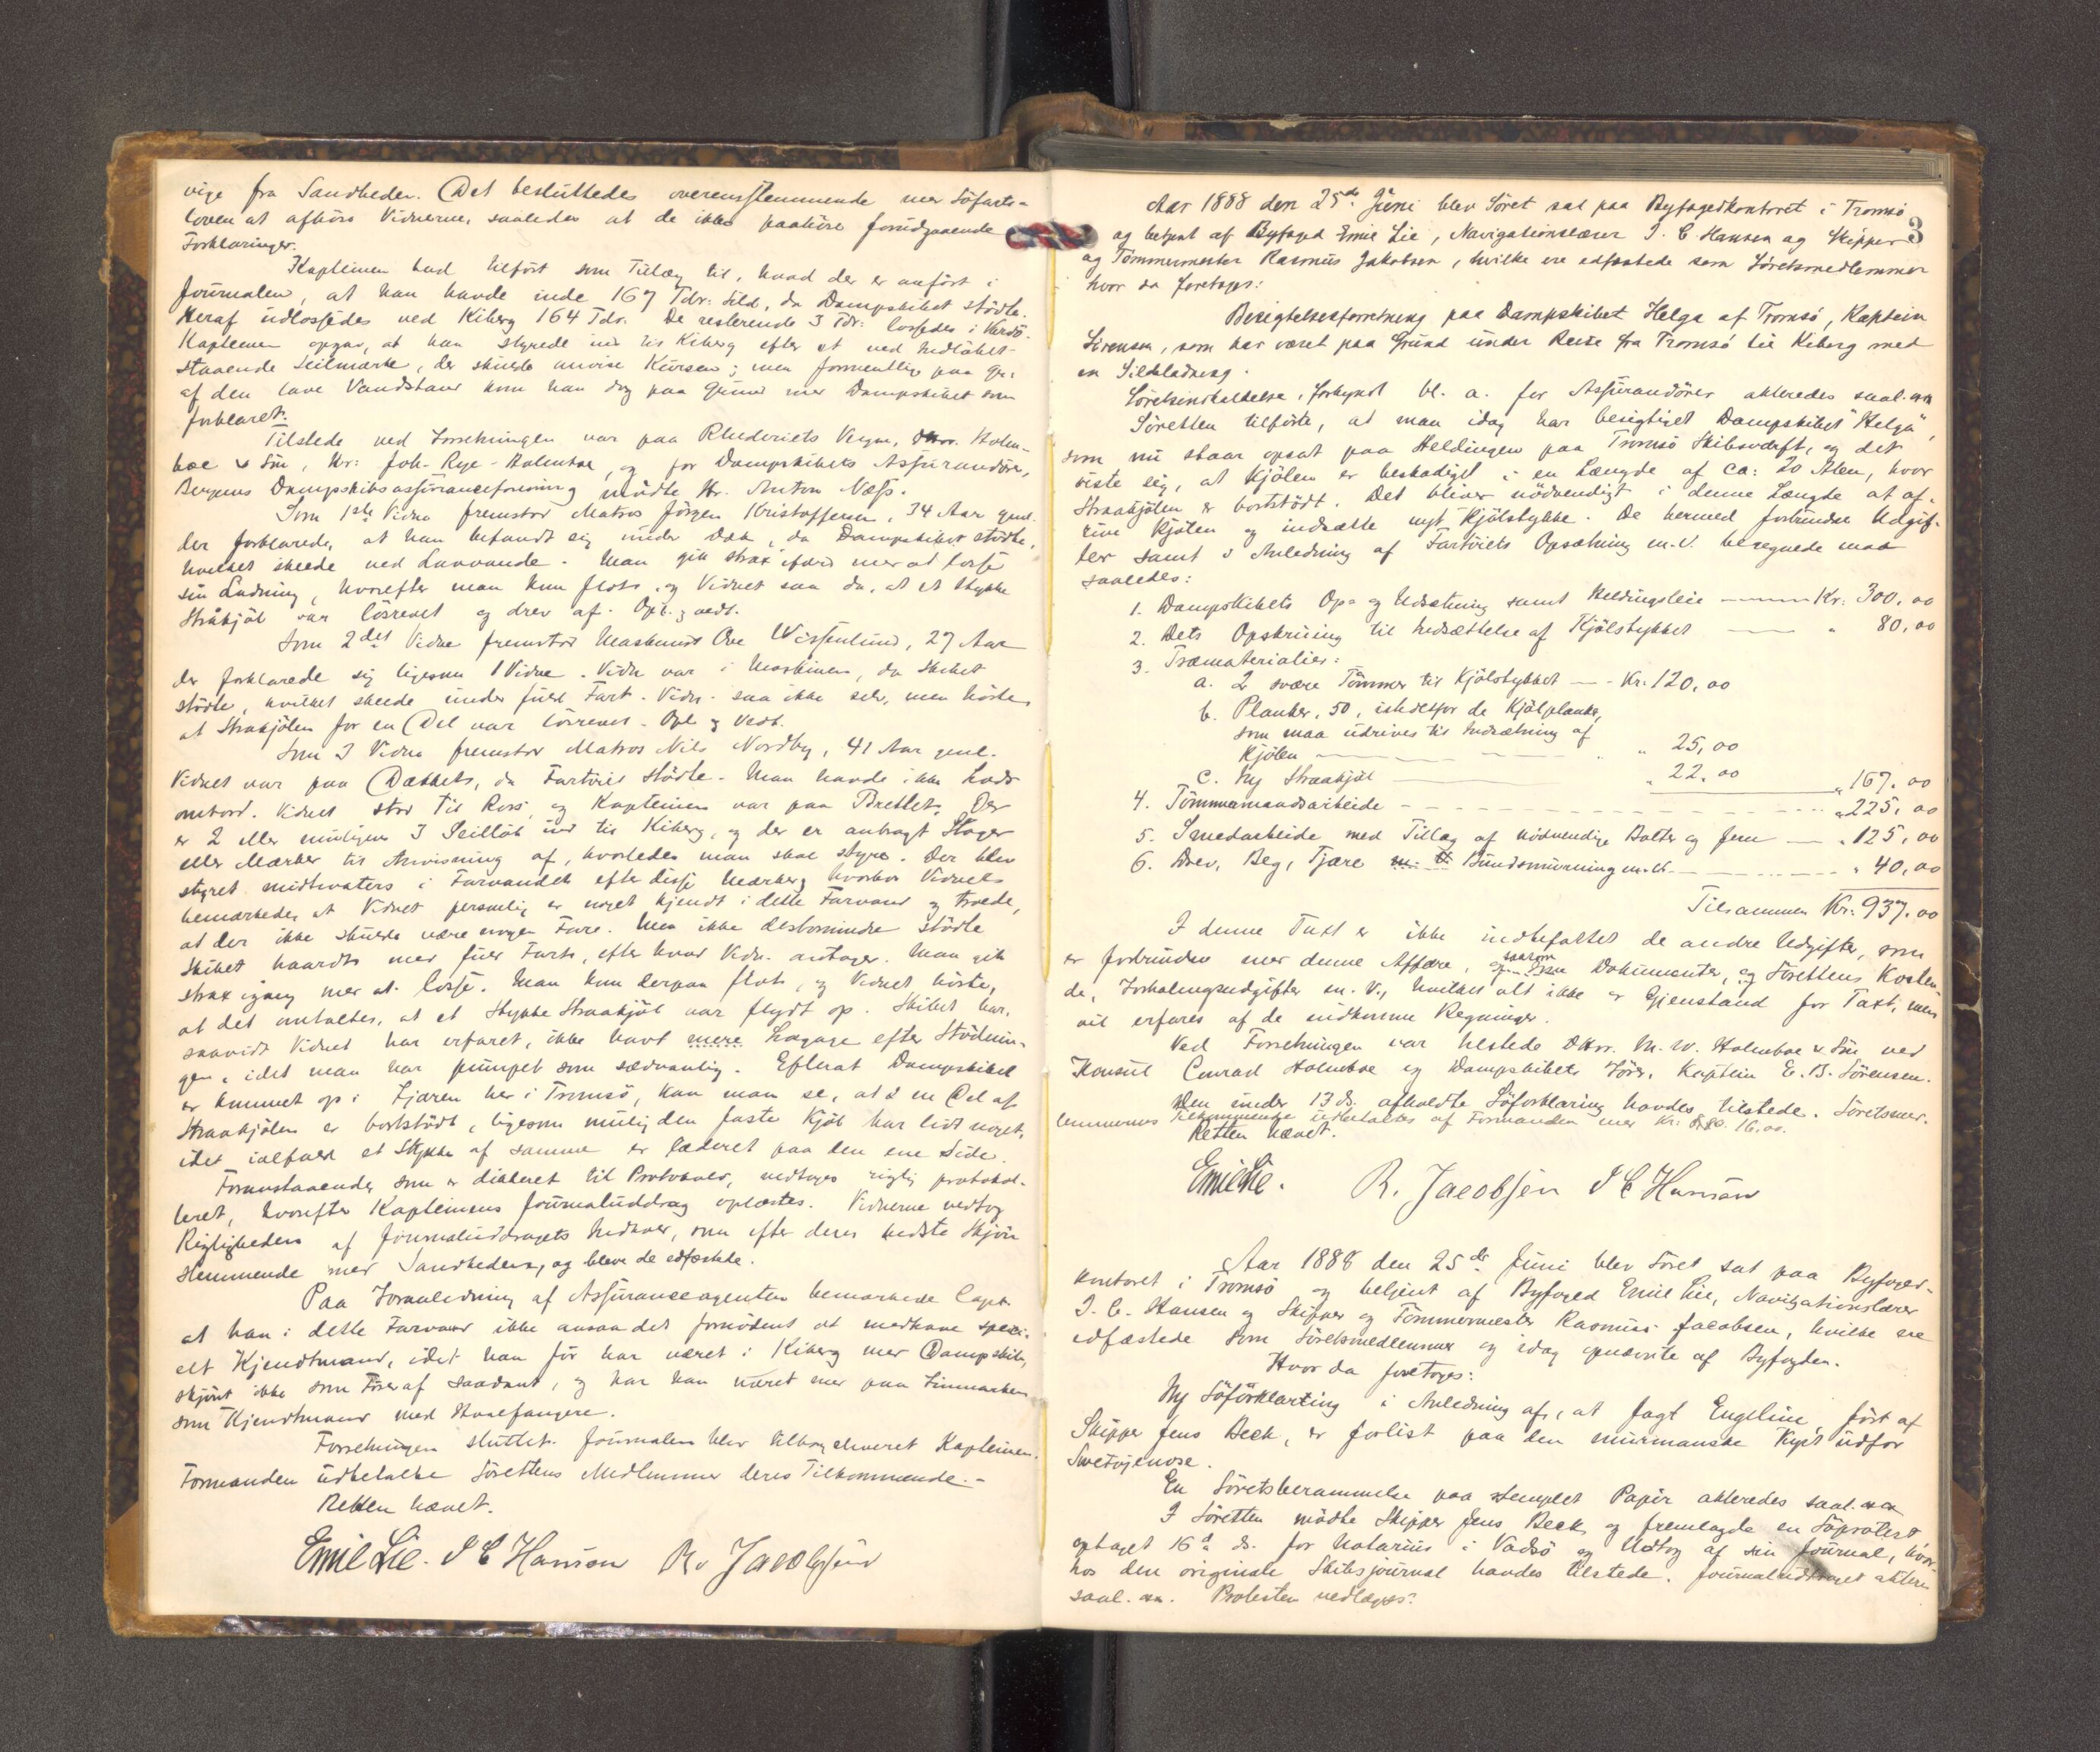 vige fra Sandheden. Det besluttedes overensstemmende med Söfarts-
loven at afhöre Vidnerne, saaledes at de ikke paahöre forudgaaende
Forklaringer.
Kapteinen bad tilfört som Tillæg til, hvad der er anfört i
Journalen, at han havde inde 167 Tdr: Sild, da Dampskibet stödte.
Heraf udlossedes ved Kiberg 164 Tdr. De resterende 3 Tdr: lossedes i Vardö.
Kapteinen opgav, at han styrede ind til Kiberg efter et ved Indlöbet
staaende Seilmærke, der skulde anvise Kursen; men formentlig paa Gr:
af den lave Vandstand kom han dog paa Grund med Dampskibet som
forklaret.
Tilstede ved Forretningen var paa Rhederiets Vegne, DHrr. Holm-
boe & Sön, Hr: Joh. Rye-Holmboe, og for Dampskibets Assurandör,
Bergens Dampskibsassuranceforening mödte Hr. Anton Næss.
Som 1ste Vidne fremstod Matros Jörgen Kristoffersen, 34 Aar gml.
der forklarede, at han befandt sig under Dæk, da Dampskibet stödte,
hvilket skeede ved Lavvande. Man gik strax ifærd med at losse
sin Ladning, hvorefter man kom flot, og Vidnet saa da, at et Stykke
Stråkjöl var lösrevet og drev af. Opl. & vedt.
Som 2det Vidne fremstod Maskinist Ove Wissenlund, 27 Aar
der forklarede sig ligesom 1 Vidne. Vidn. var i Maskinen, da Skibet
stödte, hvilket skeede under fuld Fart. Vidn. saa ikke selv, men hörte
at Straakjölen for en Del var lösrevet. Opl. & Vedt.
Som 3 Vidne fremstod Matros Nils Nordby, 41 Aar gml.
Vidnet var paa Dækket, da Fartöiet stödte. Man havde ikke Lods
ombord. Vidnet stod til Rors, og Kapteinen var paa Brettet. Der
er 2 eller muligens 3 Seillöb ind til Kiberg, og der er anbragt Stager
eller Mærker til Anvisning af, hvorledes man skal styre. Der blev
styret midtvaters i Farvandet efter disse Mærker, hvorhos Vidnet
bemærkede, at Vidnet personlig er noget kjendt i dette Farvand og troede,
at der ikke skulde være nogen Fare. Men ikke destomindre stödte
Skibet haardt med fuld Fart, efter hvad Vidn. antager. Man gik
strax igang med at losse. Man kom derpaa flot, og Vidnet hörte,
at det omtaltes, at et Stykke Straakjöl var flydt op. Skibet har,
saavidt Vidnet har erfaret, ikke havt mere Lægage efter Stödnin-
gen, idet man har pumpet som sædvanlig. Efterat Dampskibet
er kommet op i Fjæren her i Tromsö, kan man se, at en Del af
Straakjölen er bortstödt, ligesom mulig den faste Kjöl har lidt noget,
idet ialfald et Stykke af samme er læderet paa den ene Side.
Foranstaaende, som er dikteret til Protokols, vedtoges rigtig protokol-
leret, hvorefter Kapteinens Journaluddrag oplæstes. Vidnerne vedtog
Rigtigheden af Journaluddragets Indhold, som efter deres bedste Skjön
stemmende med Sandheden, og bleve de edfæstede.
Paa Foranledning af Assuranceagenten bemærkede Capt.
at han i dette Farvand ikke ansaa det fornödent at medhave speci-
elt Kjendtmand, idet han för har været i Kiberg med Dampskib,
skjönt ikke som Förer af saadant, og har han været med paa Finmarken
som Kjendtmand med Hvalfangere.
Forretningen sluttet. Journalen blev tilbageleveret Kapteinen.
Formanden udbetalte Sörettens Medlemmer deres Tilkommende.-
Retten hævet.
Emil Lie. I C Hanson R. Jacobsen
3
Aar 1888 den 25de Juni blev Söret sat paa Byfogedkontoret i Tromsö
og betjent af Byfoged Emil Lie, Navigationslærer I. C Hansen og Skipper
og Tömmermester Rasmus Jakobsen, hvilke ere edfæstede som Söretsmedlemmer
hvor da foretoges:
Besigtelsesforretning paa Dampskibet Helga af Tromsö, Kaptein
Sörensen, som har været paa Grund under Reise fra Tromsö til Kiberg med
en Sildeladning.
Söretsindkaldelse, forkyndt bl. a. for Assurandörer akteredes saal.
Söretten tilförte, at man idag har besigtiget Dampskibet "Helga",
som nu staar opsat paa Heldingen paa Tromsö Skibsværft, og det
viste sig, at Kjölen er beskadiget i en Længde af ca: 20 Alen, hvor
Straakjölen er bortstödt. Det bliver nödvendigt i denne Længde at af-
rive Kjölen og indsætte nyt Kjölstykke. De hermed forbundne Udgif-
ter samt i Anledning af Fartöiets Opsætning m.V. beregnede man
saaledes:
1. Dampskibets Op- og Udsætning samt Heldingsleie Kr: 300,00
2. Dets Opskruing til Indsættelse af Kjölstykket " 80,00
3. Træmaterialier:
a. 2 svære Tömmer til Kjölstykket Kr: 120,00
b. Planker, 50, istedetfor de Kjölplanke,
som maa udrives til Indsætning af
Kjölen " 25,00
c. Ny Straakjöl " 22,00 " 167,00
4. Tömmermandsarbeide " 225,00
5. Smedarbeide med Tillæg af nödvendige Bolter og Jern " 125,00
6. Drev, Beg, Tjære Bundsmurning m.V. " 40,00
Tilsammen Kr: 937.00
I denne Taxt er ikke indbefattet de andre Udgifter, som
er forbunden med denne Affære, saasom Dokumenter, og Sörettens Kosten-
de, Forhalingsudgifter m. V., hvilket alt ikke er Gjenstand for Taxt, men
vil erfares af de indkomne Regninger.
Ved Forretningen var tilstede DHrr. M. W. Holmboe & Sön ved
Konsul Conrad Holmboe og Dampskibets Förer, Kaptein E. B. Sörensen.
Den under 13 ds. afholdte Söforklaring havdes tilstede. Söretsmed-
lemmernes Tilkommende udbetaltes af Formanden med Kr: 16,00.
Retten hævet.
Emil Lie. R. Jacobsen I C Hanson
Aar 1888 den 25de Juni blev Söret sat paa Byfoged-
kontoret i Tromsö og betjent af Byfoged Emil Lie, Navigationslærer
I. C. Hansen og Skipper og Tömmermester Rasmus Jacobsen, hvilke ere
edfæstede som Söretsmedlemmer og idag opnævnte af Byfogden.
Hvor da foretoges:
Ny Söforklaring i Anledning af, at Jagt Engeline, fört af
Skipper Jens Beck, er forlist paa den murmanske Kyst udfor
Swetojenose.
En Söretsberammelse paa stemplet Papir akteredes saal.
I Söretten mödte Skipper Jens Beck og fremlagde en Söprotest
optaget 16de ds. for Notarius i Vadsö og Udtog af sin Journal, hvor-
hos den originale Skibsjournal havdes tilstede. Journaluddraget akteres
saal. Protesten vedlægges.